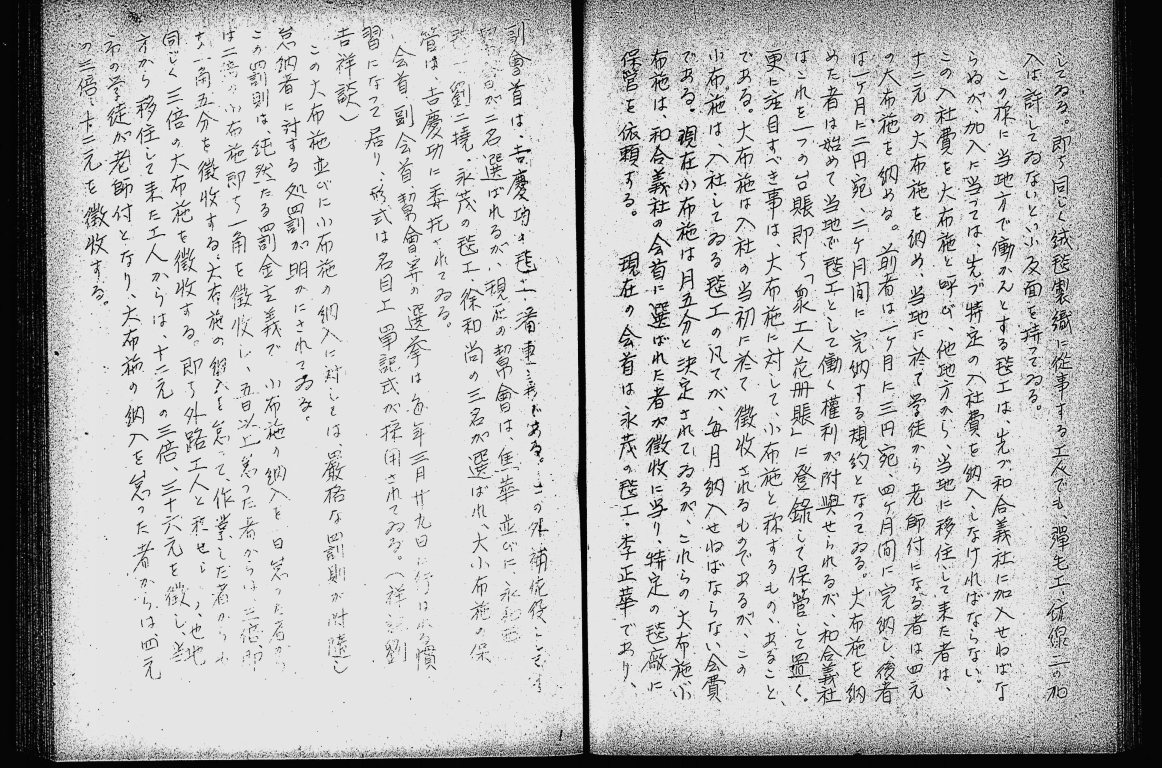 してゐる。即ち同じく絨毯製織に従事する工人でも、彈毛工、紡線工の加
入は許してゐないといふ反面を持つてゐる。
この様に当地方で働かんとする毯工は、先づ和合義社に加入せねばな
らぬが、加入に当つては、先づ特定の入社費を納入しなければならない。
この入社費を大布施と呼び、他地方から、当地に移住して来た者は、
十二元の大布施を納め、当地に於て学徒から老師付になる者は四元
の大布施を納める。前者は一ヶ月に三円宛、四ヶ月間に完納し、後者
は一ヶ月に二円宛、二ヶ月間に完納する規約となつてゐる。大布施を納
めた者は始めて当地で毯工として働く權利が附與せられるが、和合義社
はこれを一つの台賬即ち「衆工人花册賬」に登錄して保管して置く。
更に注目すべき事は、大布施に対して、小布施と称するもの、あること
である。大布施は入社の当初に於て徴收されるものであるが、この
小布施は、入社してゐる毯工の凡てが、毎月納入せねばならない会費
である。現在小布施は月五分と決定されてゐるが、これらの大布施小
布施は、和合義社の会首に選ばれた者が徴收に当り、特定の毯廠に
保管を依頼する。 現在の会首は永茂の毯工・李正華であり、
副會首は、吉慶功の毯工 潘連 である。この外補佐役として
幫會が二名選ばれるが、現在の幫會は、焦華 並びに永
劉二堯、永茂の毯工徐和尚の三名が選ばれ、大小布施の保
管は、吉慶功に委托されてゐる。
会首、副会首、幫會等の選挙は毎年三月廿九日に行はれる慣
習になつて居り、形式は名目上 單記式が採用されてゐる。(祥 劉
吉祥談)
この大布施並びに小布施の納入に対しては嚴格な罰則が附隨し
怠納者に対する処罰が明かにされてゐる。
この罰則は、純然たる罰金主義で 小布施の納入を一日怠つた者から
は二倍の小布施即ち一角を徴收し、五日以上怠つた者からは三倍、即
ち一角五分を徴收する。大布施の納入を怠つて、作業した者からも
同じく三倍の大布施を徴收する。即ち外路工人と称せられ、他地
方から移住して来た工人からは、十二元の三倍、三十六元を徴し、当
市の学徒が老師付となり、大布施の納入を怠つた者からは四元
の三倍、十二元を徴收する。
1